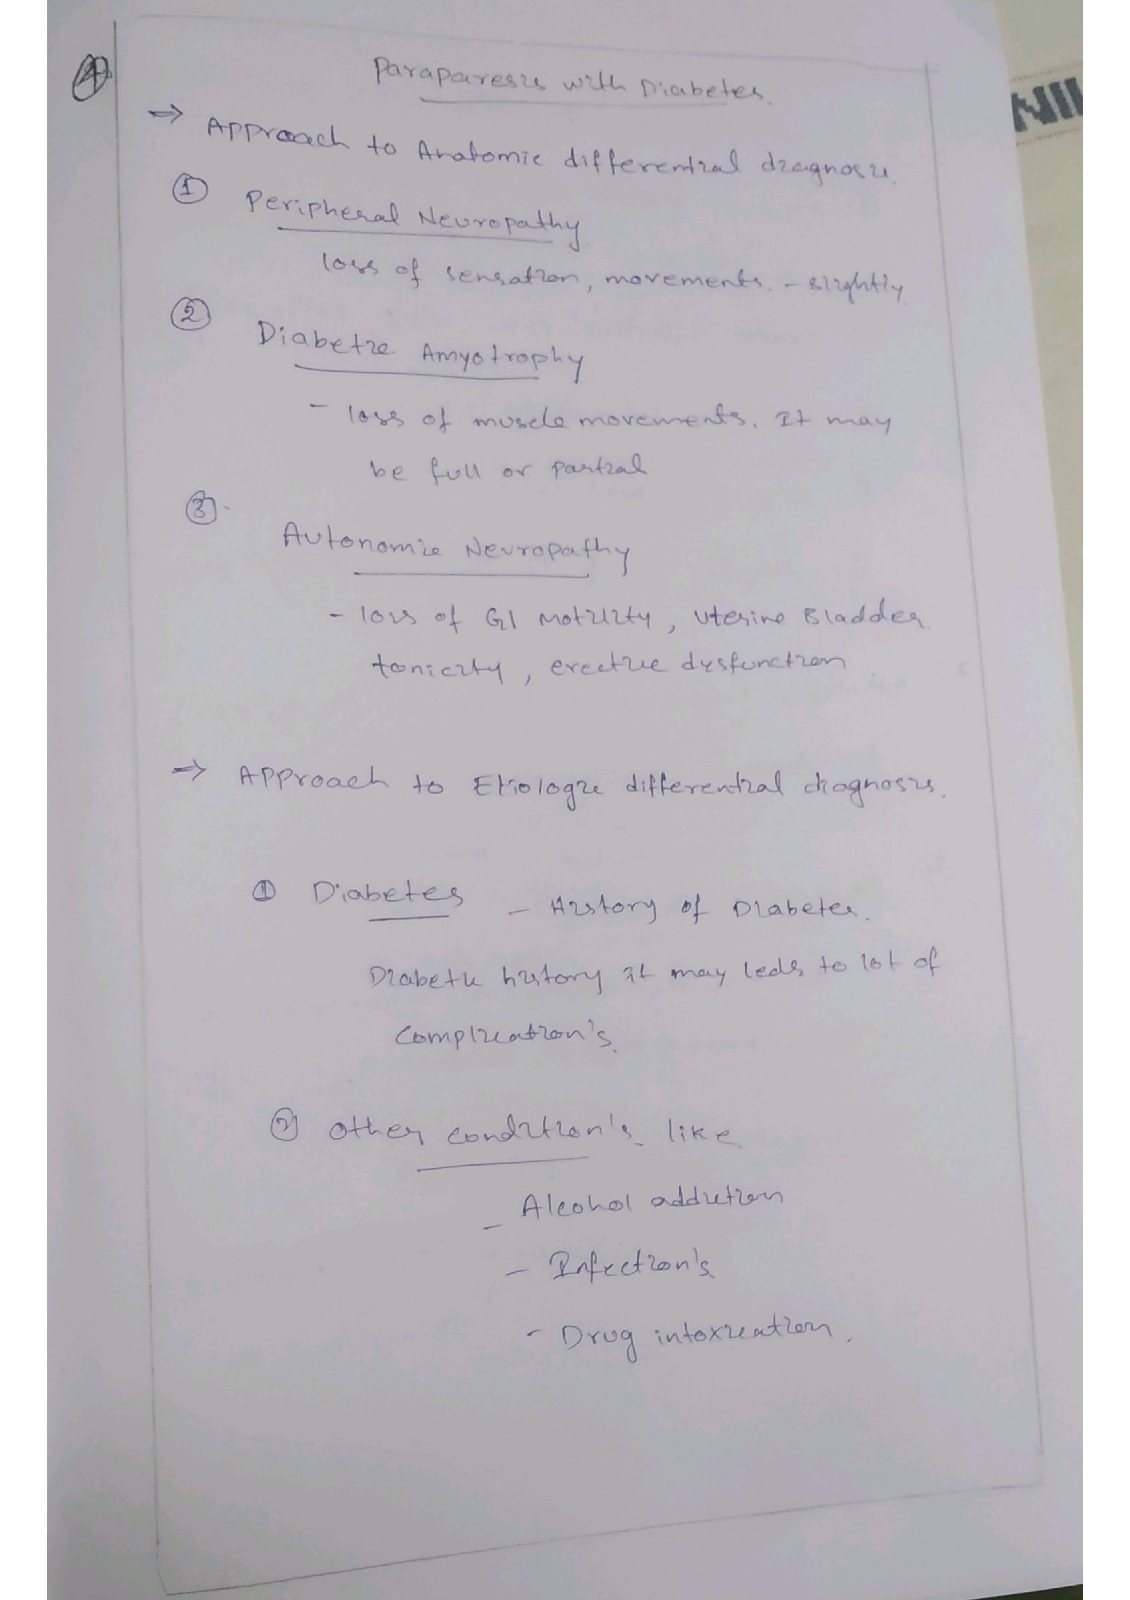 4
Paraparesis with Diabetes.
→ Approach to Anatomic differential diagnosis.
① Peripheral Neuropathy
loss of sensation, movements. - slightly
② Diabetic Amyotrophy
- loss of muscle movements. It may
be full or partial
③. Autonomic Neuropathy
- loss of GI Motility, Uterine Bladder
tonicity, erectile dysfunction.
→ Approach to Etiologic differential diagnosis.
① Diabetes - History of Diabetes.
Diabetic history it may leds to lot of
Complication's.
② Other condition's like
- Alcohol addiction
- Infection's
- Drug intoxication.